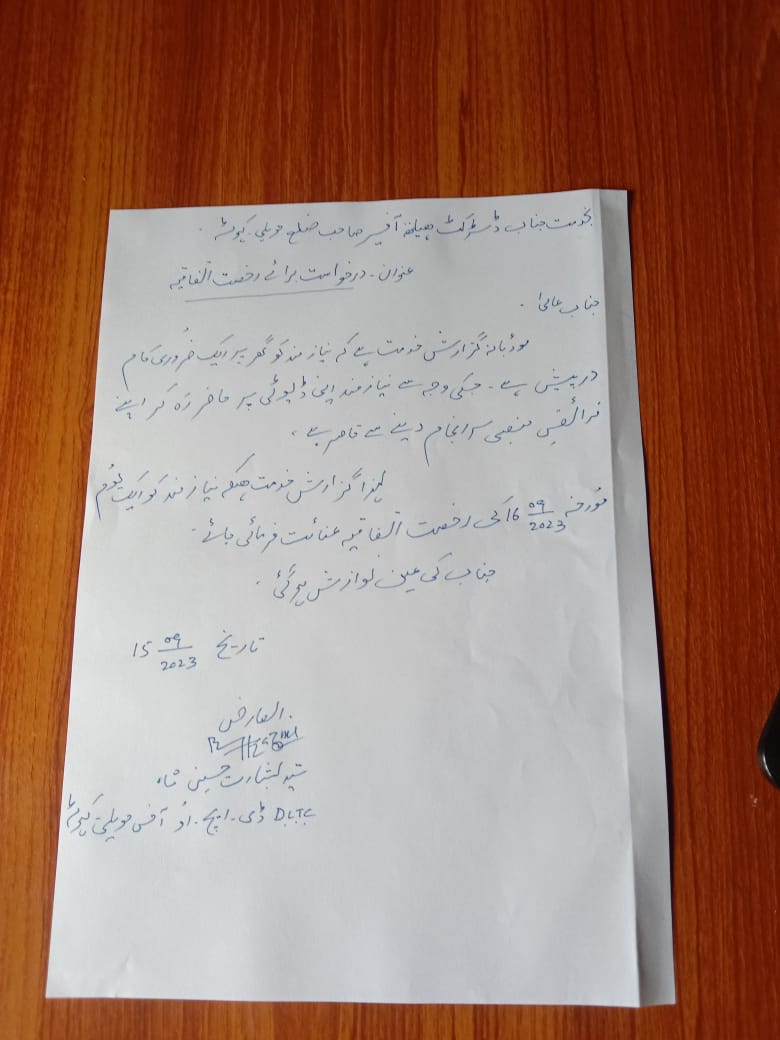 بخدمت جناب ڈسٹرکٹ ہیلتھ آفیسر صاحب ضلع حویلی کہوٹہ۔
عنوان۔ درخواست برائے رخصت اتفاقیہ
جناب عالی!
مودبانہ گزارش خدمت ہے کہ نیاز مند کو گھر پر ایک ضروری کام
درپیش ہے۔ جسکی وجہ سے نیاز مند اپنی ڈیوٹی پر حاضر رہ کر اپنے
فرائض منصبی سرانجام دینے سے قاصر ہے۔
لہذا گزارش خدمت ہیکہ نیاز مند کو ایک یوم
مورخہ 16 09/2023 کی رخصت اتفاقیہ عنائت فرمائی جائے۔
جناب کی عین نوازش ہو گئی۔
تاریخ 15 09/2023
العارض
سید بشارت حسین شاہ
DLTC ڈی۔ ایچ۔ او آفس حویلی کہوٹہ